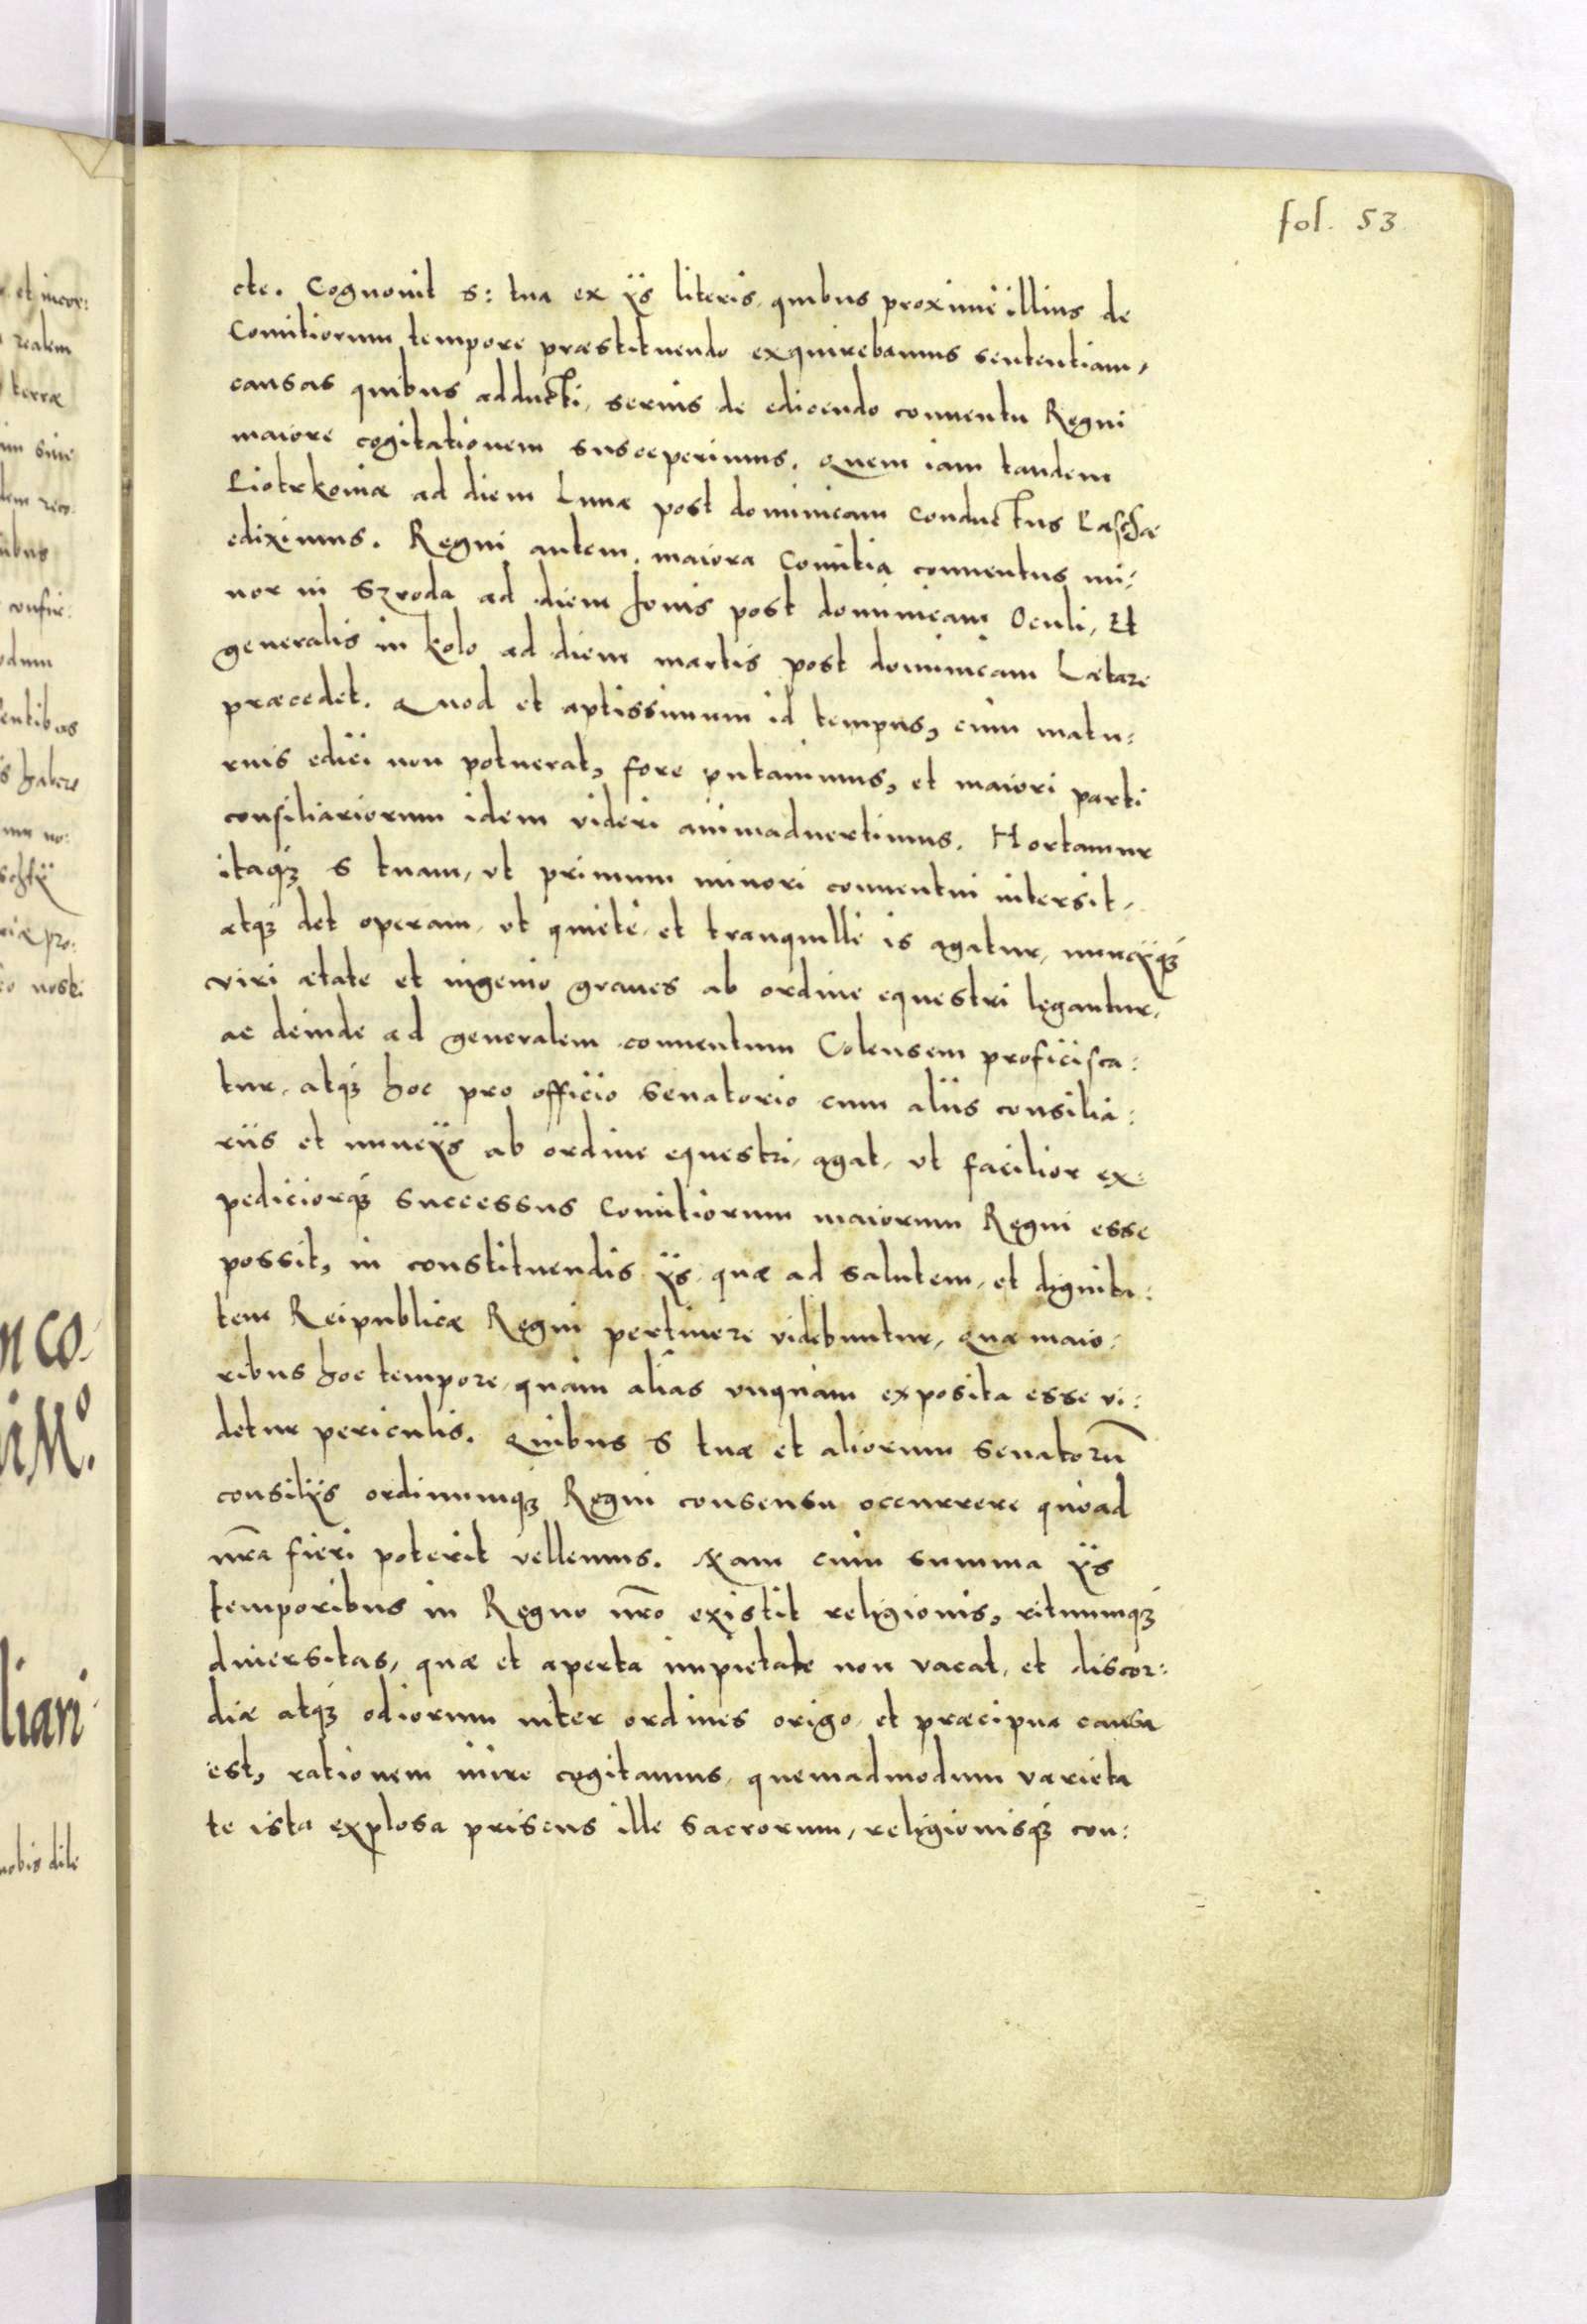 fol. 53
cte. Cognouit S: tua ex ijs literis, quibus proximè illius de
Comitiorum tempore præstituendo exquirebamus sententiam,
causas quibus adducti, serius de edicendo conuentu Regni
maiore cogitationem susceperimus. Quem iam tandem
Piotrkouiæ ad diem Lunæ post dominicam Conductus Paschæ
ediximus. Regni autem, maiora Comitia conuentus mi:
nor in Szroda ad diem Jouis post dominicam Oculi, Et
generalis in Kolo ad diem martis post dominicam Lætare
præcedet. Quod et aptissimum id tempus, cùm matu:
rius edici non potuerat, fore putauimus, et maiori parti
consiliariorum idem videri animaduertimus. Hortamur
itaq́ꝫ S tuam, vt primum minori conuentui intersit,
atq́ꝫ det operam, vt quietè, et tranquillè is agatur, nuncijq́ꝫ
viri ætate et ingenio graues ab ordine equestri legantur,
ac deinde ad generalem conuentum Colensem proficisca:
tur, atq́ꝫ hoc pro officio senatorio cum alijs consilia:
rijs et nuncijs ab ordine equestri, agat, vt facilior ex:
pediciorq́ꝫ successus Comitiorum maiorum Regni esse
possit, in constituendis ijs, quæ ad salutem, et dignita:
tem Reipublicæ Regni pertinere videbuntur, Quæ maio:
ribus hoc tempore, quàm aliàs vnquàm exposita esse vi:
detur periculis. Quibus S tuæ et aliorum senatorũ
consilijs ordinumq́ꝫ Regni consensu occurrere quoad
nr̃a fieri poterit vellemus. Nam cùm summa ijs
temporibus in Regno nr̃o existit religionis, rituumq́ꝫ
diuersitas, quæ et aperta impietate non vacat, et discor:
diæ atq́ꝫ odiorum inter ordines origo, et præcipua causa
est, rationem inire cogitamus, quemadmodum varieta
te ista explosa priscus ille sacrorum, religionisq́ꝫ con: